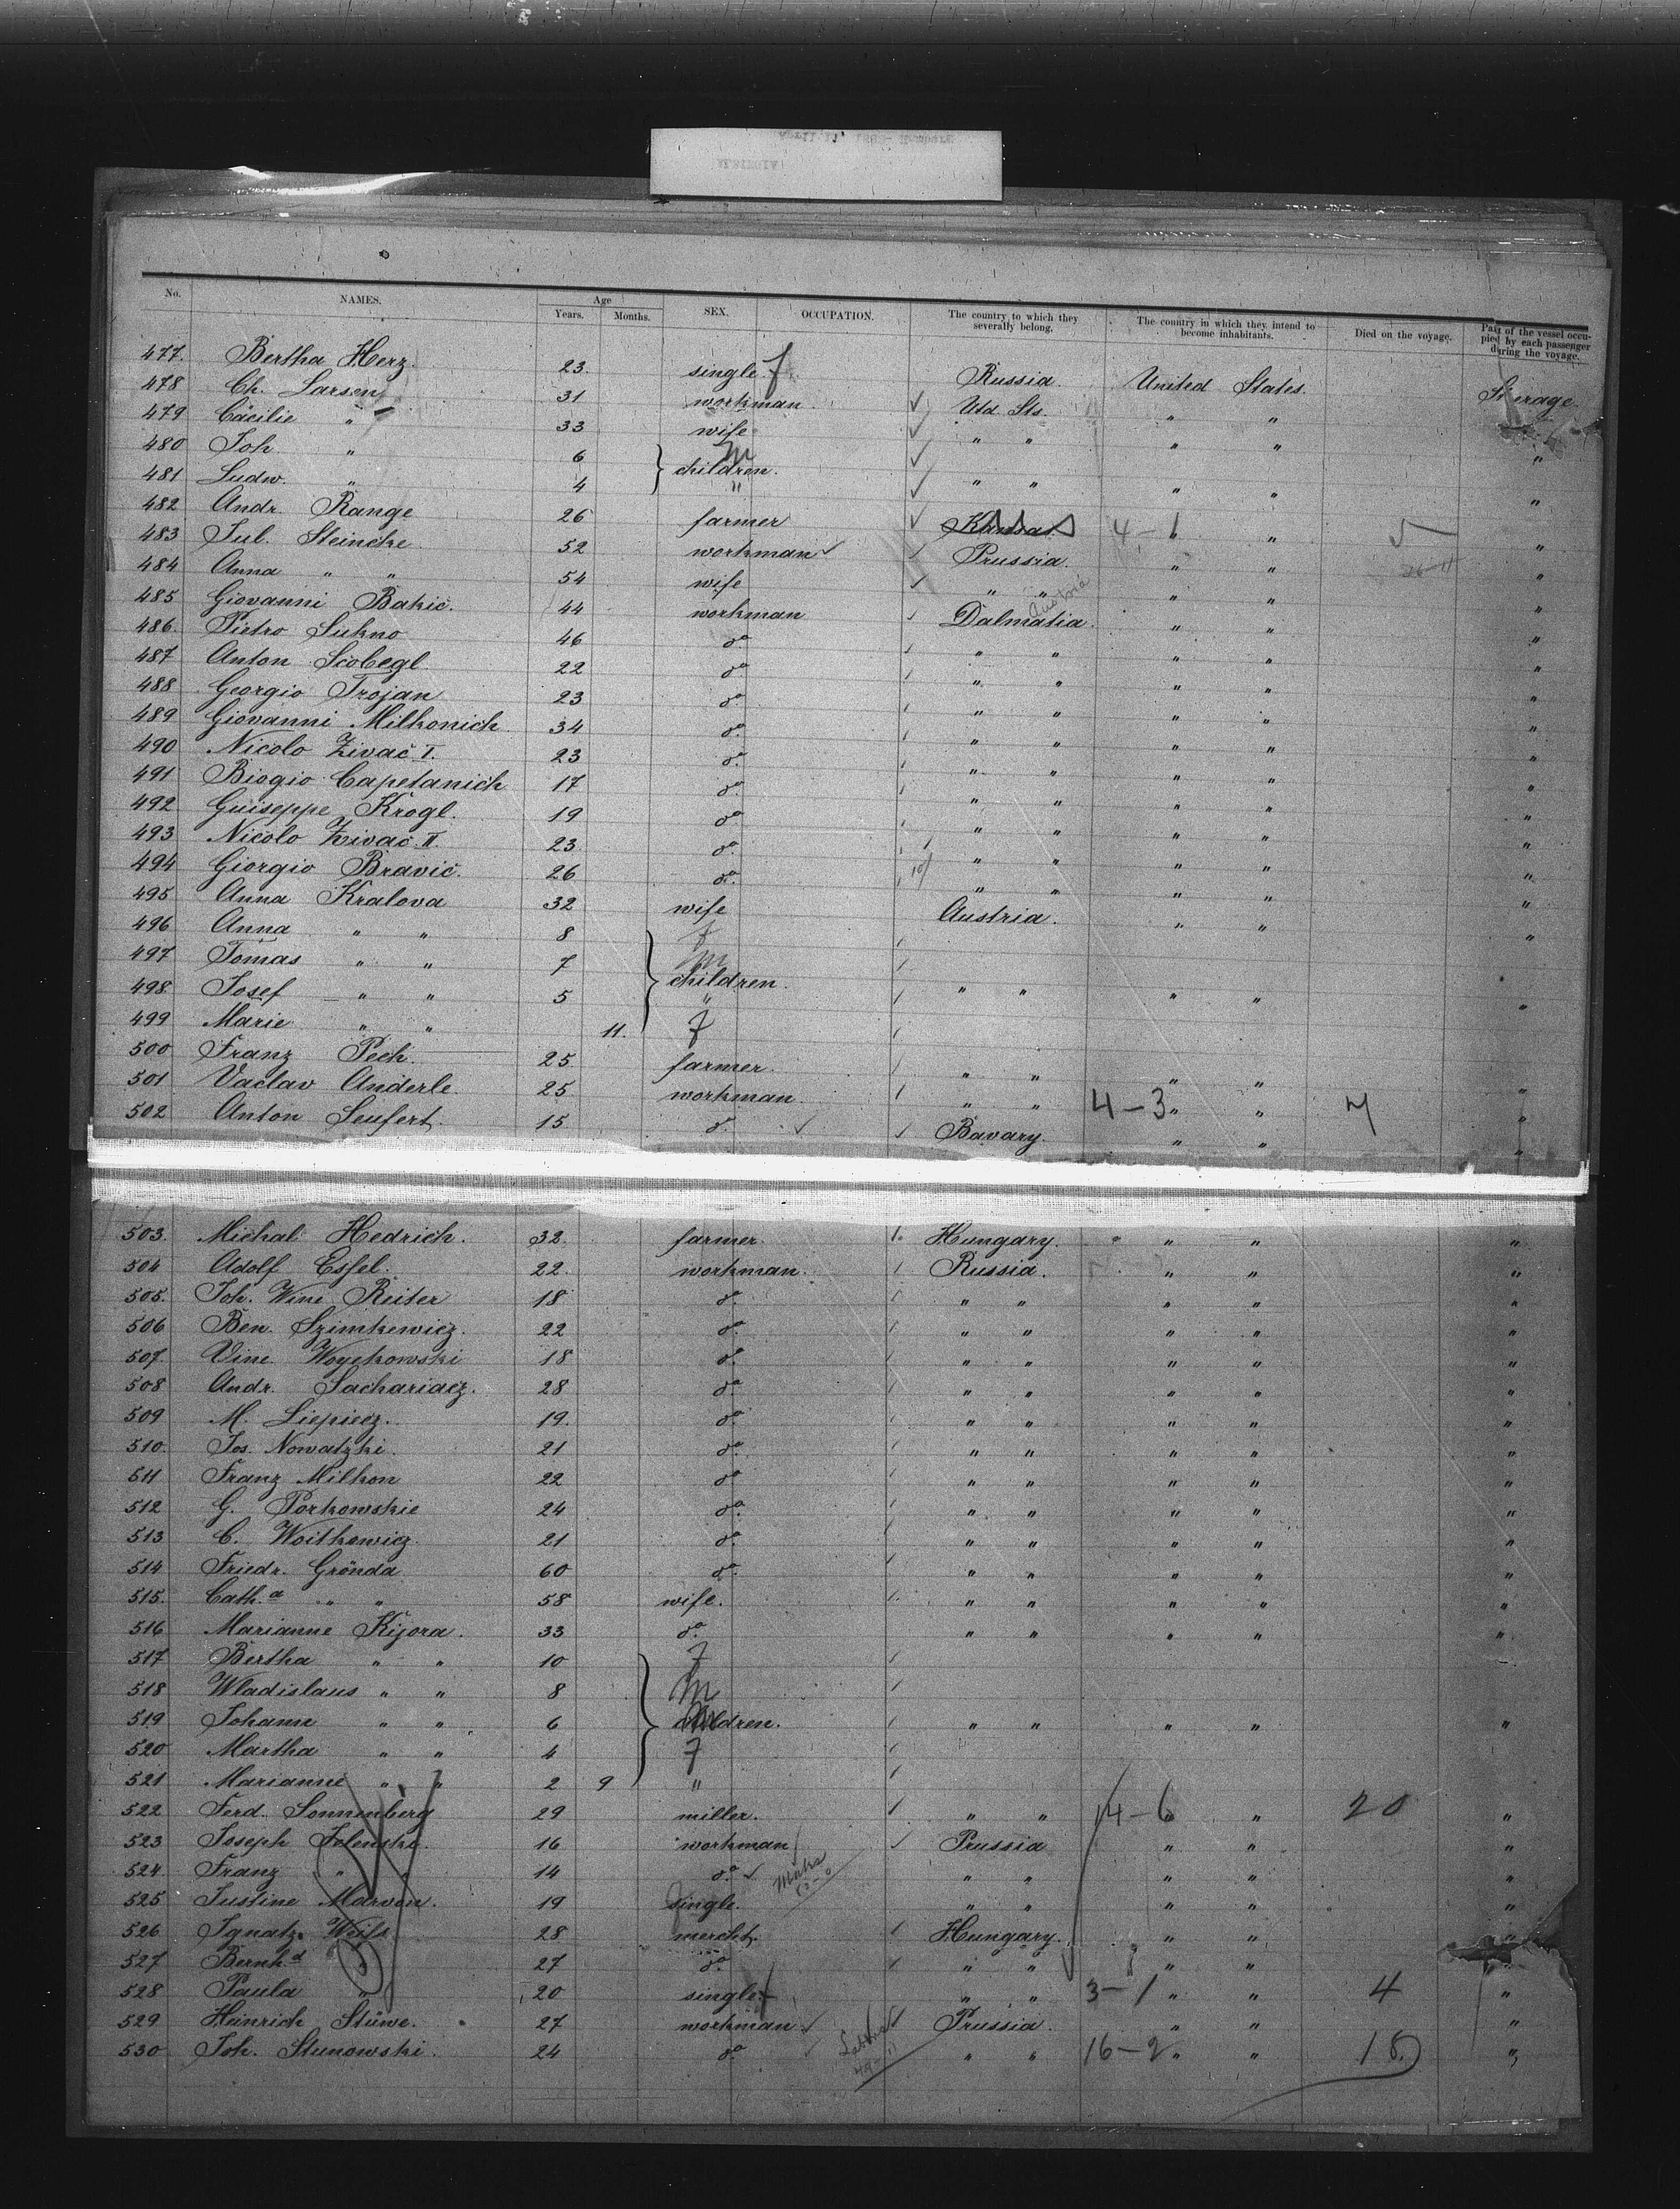 No. NAMES. Age Years. Months. SEX. OCCUPATION. The country to which they severally belong. The country in which they intend to become inhabitants. Died on the voyage. Part of the vessel occupied by each passenger during the voyage.
477. Bertha Herz. 23. single. f Russia. United States. Steerage.
478 Ch. Larsen 31 workman Utd. Sts. " "
479 Cäcilie " 33 wife " " " " "
480 Joh. " 6 m
481 Ludw. " 4 children. " " " " " "
482 Andr. Range 26 farmer Kansas 4-1 " " "
483 Jul. Steincke 52 workman Prussia. " " "
484 Anna " " 54 wife " " " " "
485 Giovanni Bakic. 44 workman Dalmatia. Austria " " "
486. Pietro Sukno 46 do. " " " " "
487 Anton Scobegl 22 do. " " " " "
488 Georgio Trojan 23 do. " " " " "
489 Giovanni Milkonich 34 do. " " " " "
490 Nicolo Zivač I. 23 do. " " " " "
491 Biogio Capetanich 17 do. " " " " "
492 Guiseppe Krogl. 19 do. " " " " "
493 Nicolo Zivač II. 23. do. " " " " "
494 Giorgio Bravič. 26 do. " " " " "
495 Anna Kralova 32 wife Austria. " " "
496 Anna " " 8 f
497 Tomas " " 7 m
498 Josef " " 5 children. " " " " " "
499 Marie " " 11. f
500 Franz Pech. 25 farmer. " " " " "
501 Vaclav Anderle. 25 workman. " " 4-3 " " 7 "
502 Anton Seufert. 15 do. Bavary. " " "
503. Michal Hedrich. 32. farmer. Hungary. " " "
504 Adolf Essel. 22. workman. Russia. " " "
505. Joh. Wine Reiter 18 do. " " " " "
506 Ben. Szimkewicz. 22 do. " " " " "
507. Vinc. Woyckowski 18 do. " " " " "
508 Andr. Sachariacz. 28 do. " " " " "
509 M. Liepiecz. 19. do. " " " " "
510. Jos. Nowatzki. 21 do. " " " " "
511 Franz Milkon 22 do. " " " " "
512 G. Porkowskie 24 do. " " " " "
513 C. Woitkowicz. 21 do. " " " " "
514 Friedr. Grönda 60 do. " " " " "
515. Cath.a " " 58 wife. " " " " "
516 Marianne Kijora. 33 do. " " " " "
517 Bertha " " 10 f
518 Wladislaus " " 8 m
519 Johann " " 6 children. " " " " "
520 Martha " " 4 f
521 Marianne " " 2 9 "
522 Ferd. Sonnenberg 29 miller. " " 14-6 " " 20 "
523 Joseph Jolenski. 16 workman Prussia " " "
524 Franz " " 14 do. " " " " "
525 Justine Marven. 19 single. " " " " "
526 Ignatz Weiss. 28 mercht. Hungary. " " "
527 Bernh.d " 27 do. " " " " "
528 Paula " 20 single. f " " 3-1 " " 4 "
529 Heinrich Stüwe. 27 workman Prussia. " " "
530 Joh. Stunowski. 24 do. " " 16-2 " " 18. "